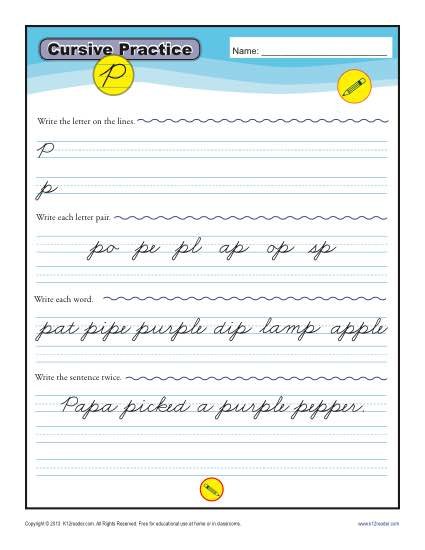 Cursive Practice
Name: ____________________
P
Write the letter on the lines.
P
p
Write each letter pair.
po pe pl ap op sp
Write each word.
pat pipe purple dip lamp apple
Write the sentence twice.
Papa picked a purple pepper.
Copyright © 2013 K12reader.com. All Rights Reserved. Free for educational use at home or in classrooms. www.k12reader.com